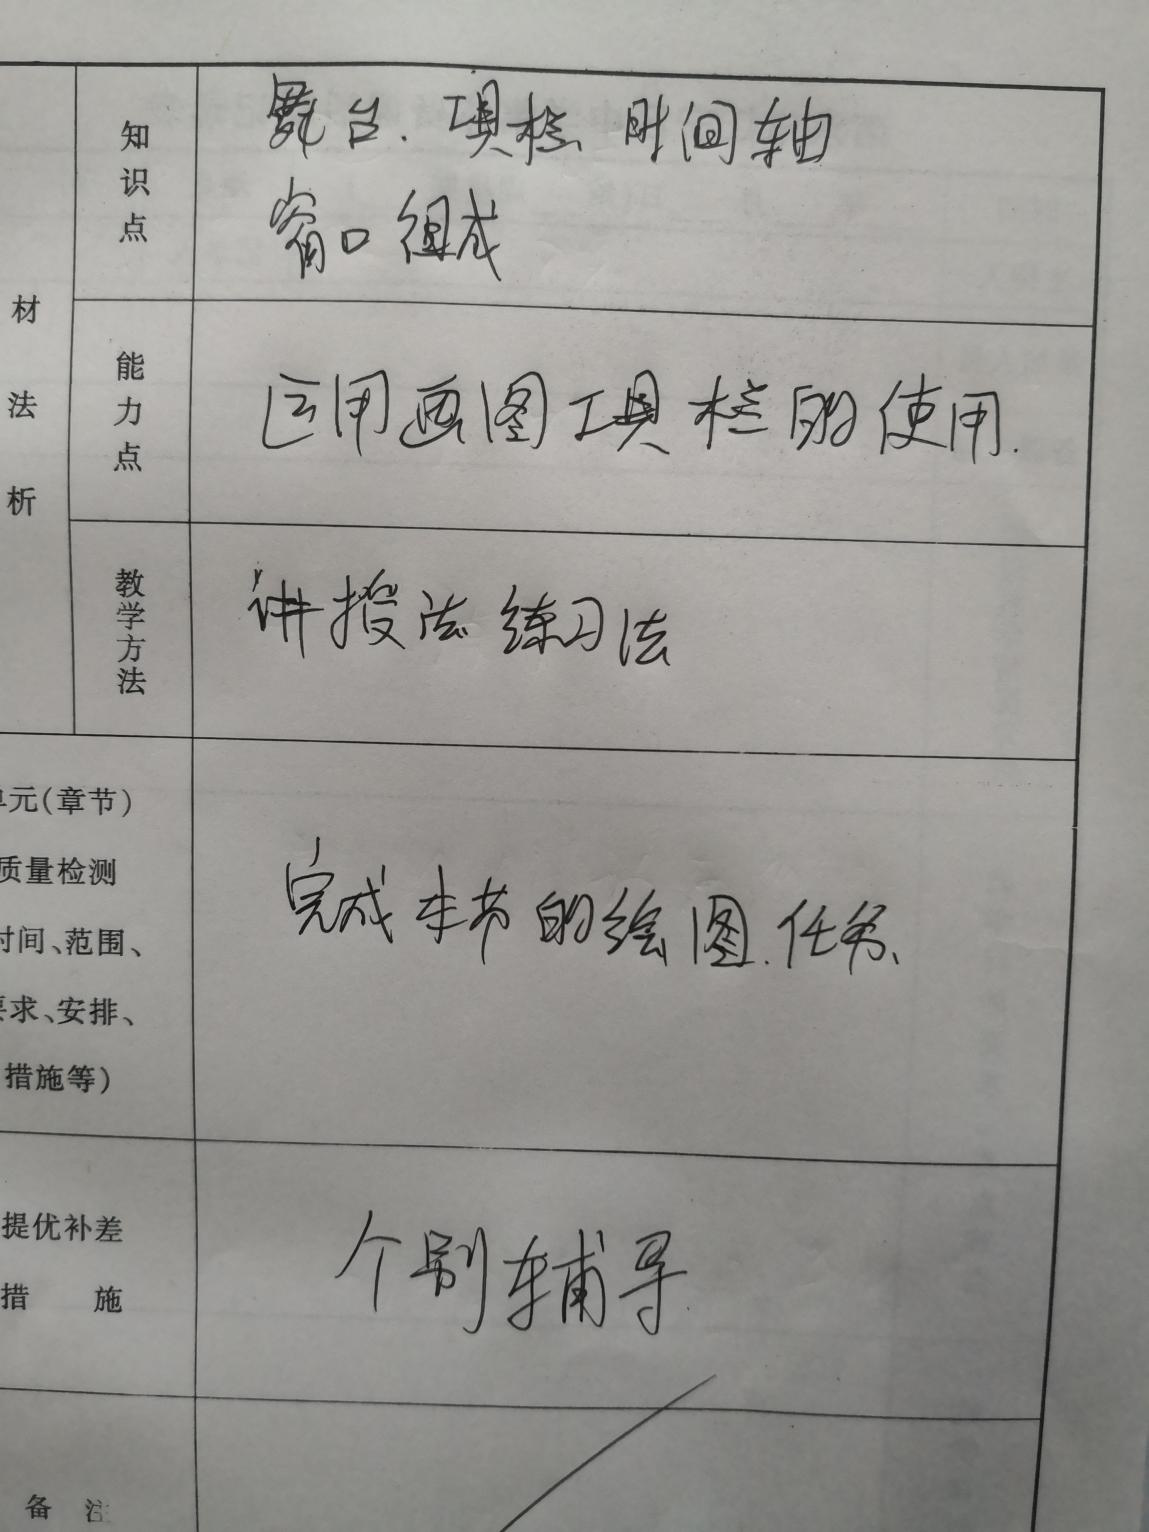 知识点
舞台、工具栏 时间轴
窗口组成
材
法
析
能力点
运用画图工具栏的使用.
教学方法
讲授法 练习法
单元(章节)
质量检测
时间、范围、
要求、安排、
措施等)
完成本节的绘图.任务、
提优补差
措 施
个别辅导
备 注